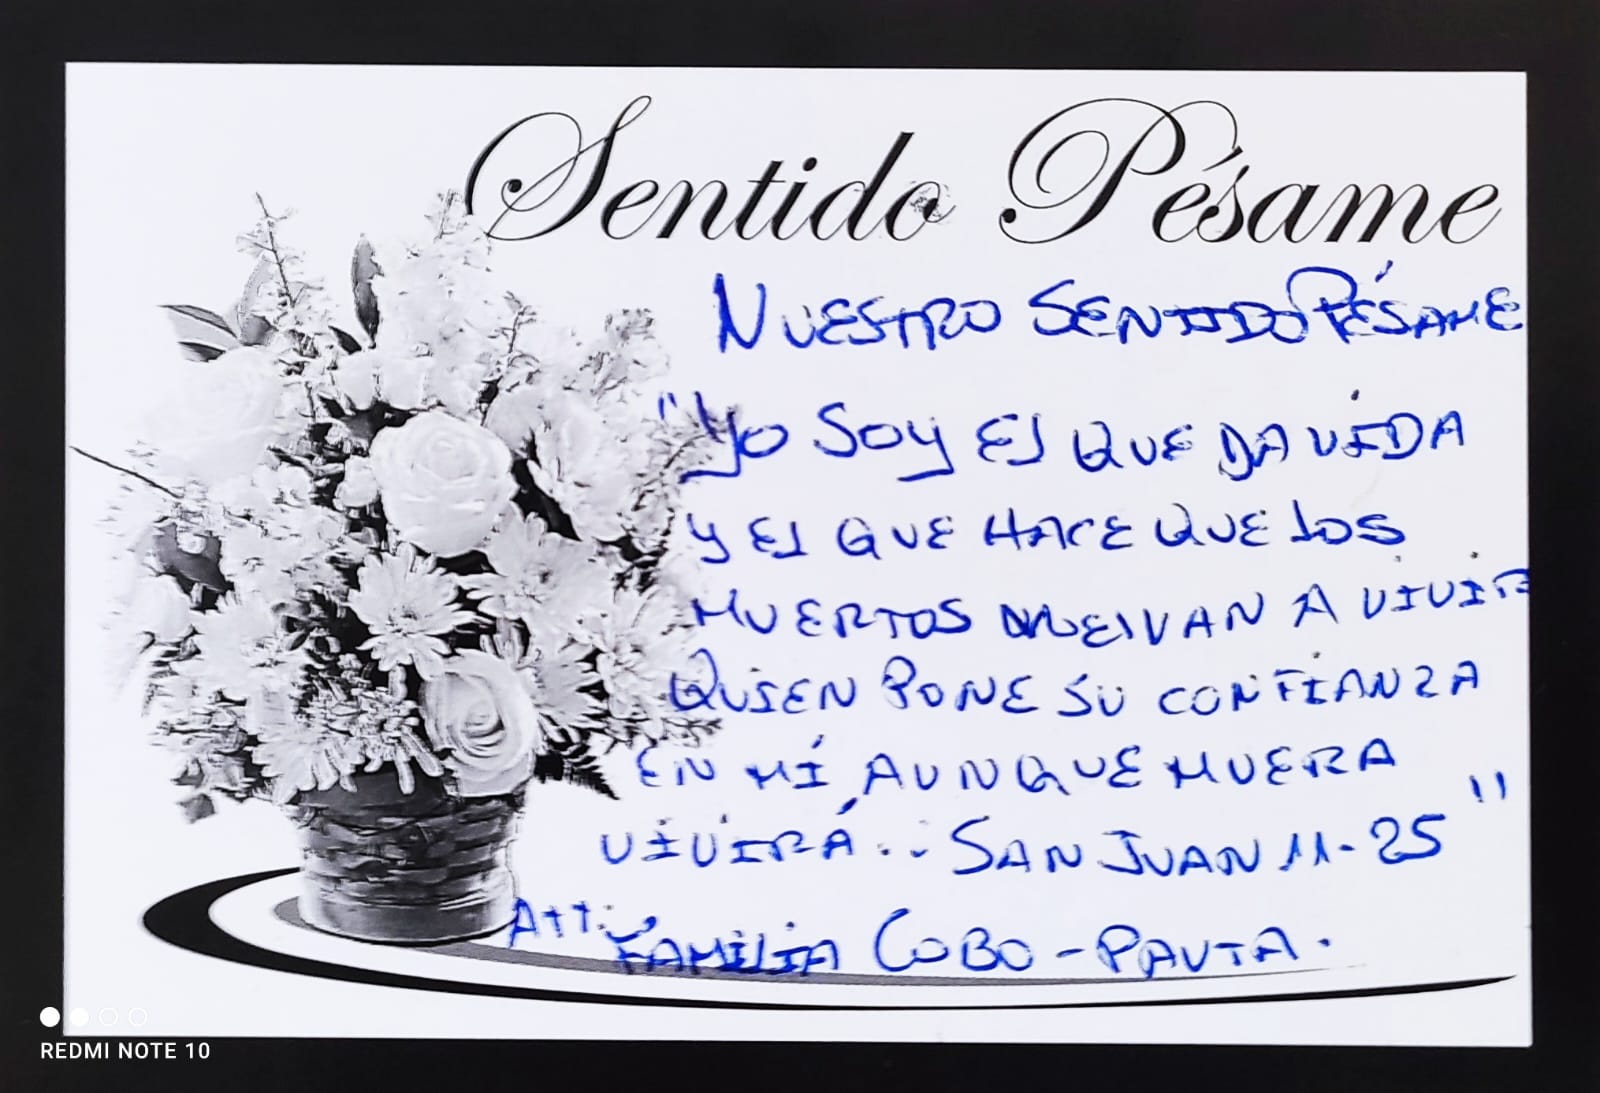 Sentido Pésame
NUESTRO SENTIDO PÉSAME
"YO SOY El QUE DA VIDA
Y El QUE HACE QUE lOS
MUERTOS VUElVAN A VIVIR
QUIEN PONE SU CONFIANZA
EN MÍ, AUNQUE MUERA
VIVIRÁ... SAN JUAN 11-25"
Att: FAMILIA COBO - PAUTA.
REDMI NOTE 10